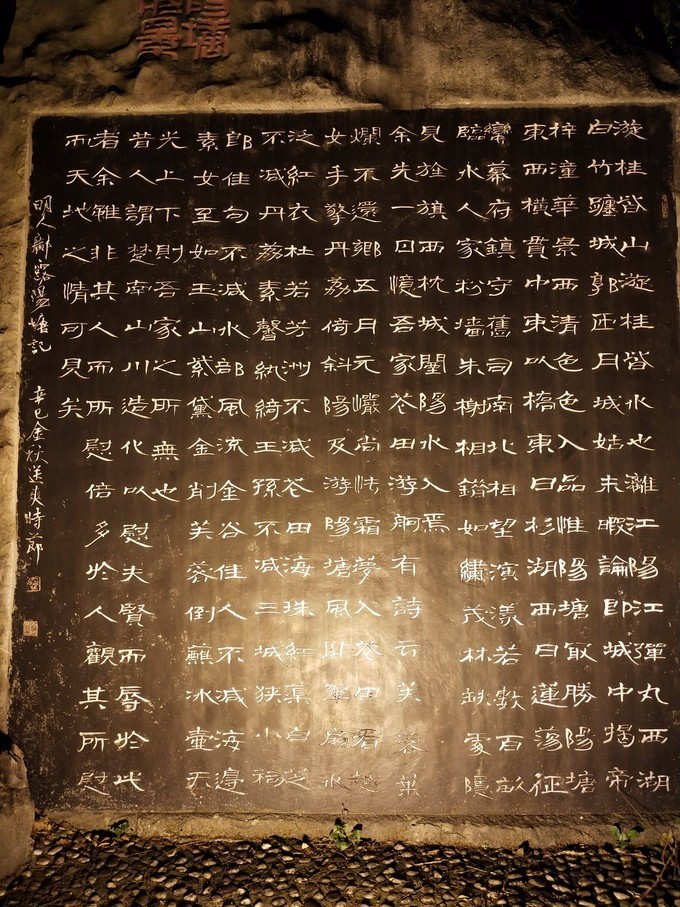 漩桂皆山漩桂皆水也灕江陽江彈丸西湖
白竹躔城郭匝月城姑未暇論即城中揭帝
梓潼華景西清色色入品惟陽塘取勝陽塘
東西橫貫中束以橋東曰杉湖西曰蓮蕩征
蠻幕府鎮守舊司南北相望演漾若數百畝
臨水人家粉墻朱榭相錯如繡茂林缺處隱
見旌旗西枕城闉陽水入焉
余先一日憶吾家花田游舸有詩云芙蓉葉
爛不還鄉五月元尚怯霜夢入花田看越
女手擎丹荔倚斜陽及游陽塘風開翠扇水
泛紅衣杜若芳洲不減花田海珠紅蕖白芝
不減丹荔素馨紈綺王孫不減三城狹小
郎佳句不減水部風流金谷佳人不減海邊
素女至如玉山紫黛金削芙蓉倒蘸冰壺天
光上下則吾家之所無也
昔人謂楚南山川造化以慰夫賢而辱於此
者余雖非其人而所慰倍多於人觀其所慰
而天地之情可見矣
明人鄺露陽塘記 辛巳金秋送爽時節